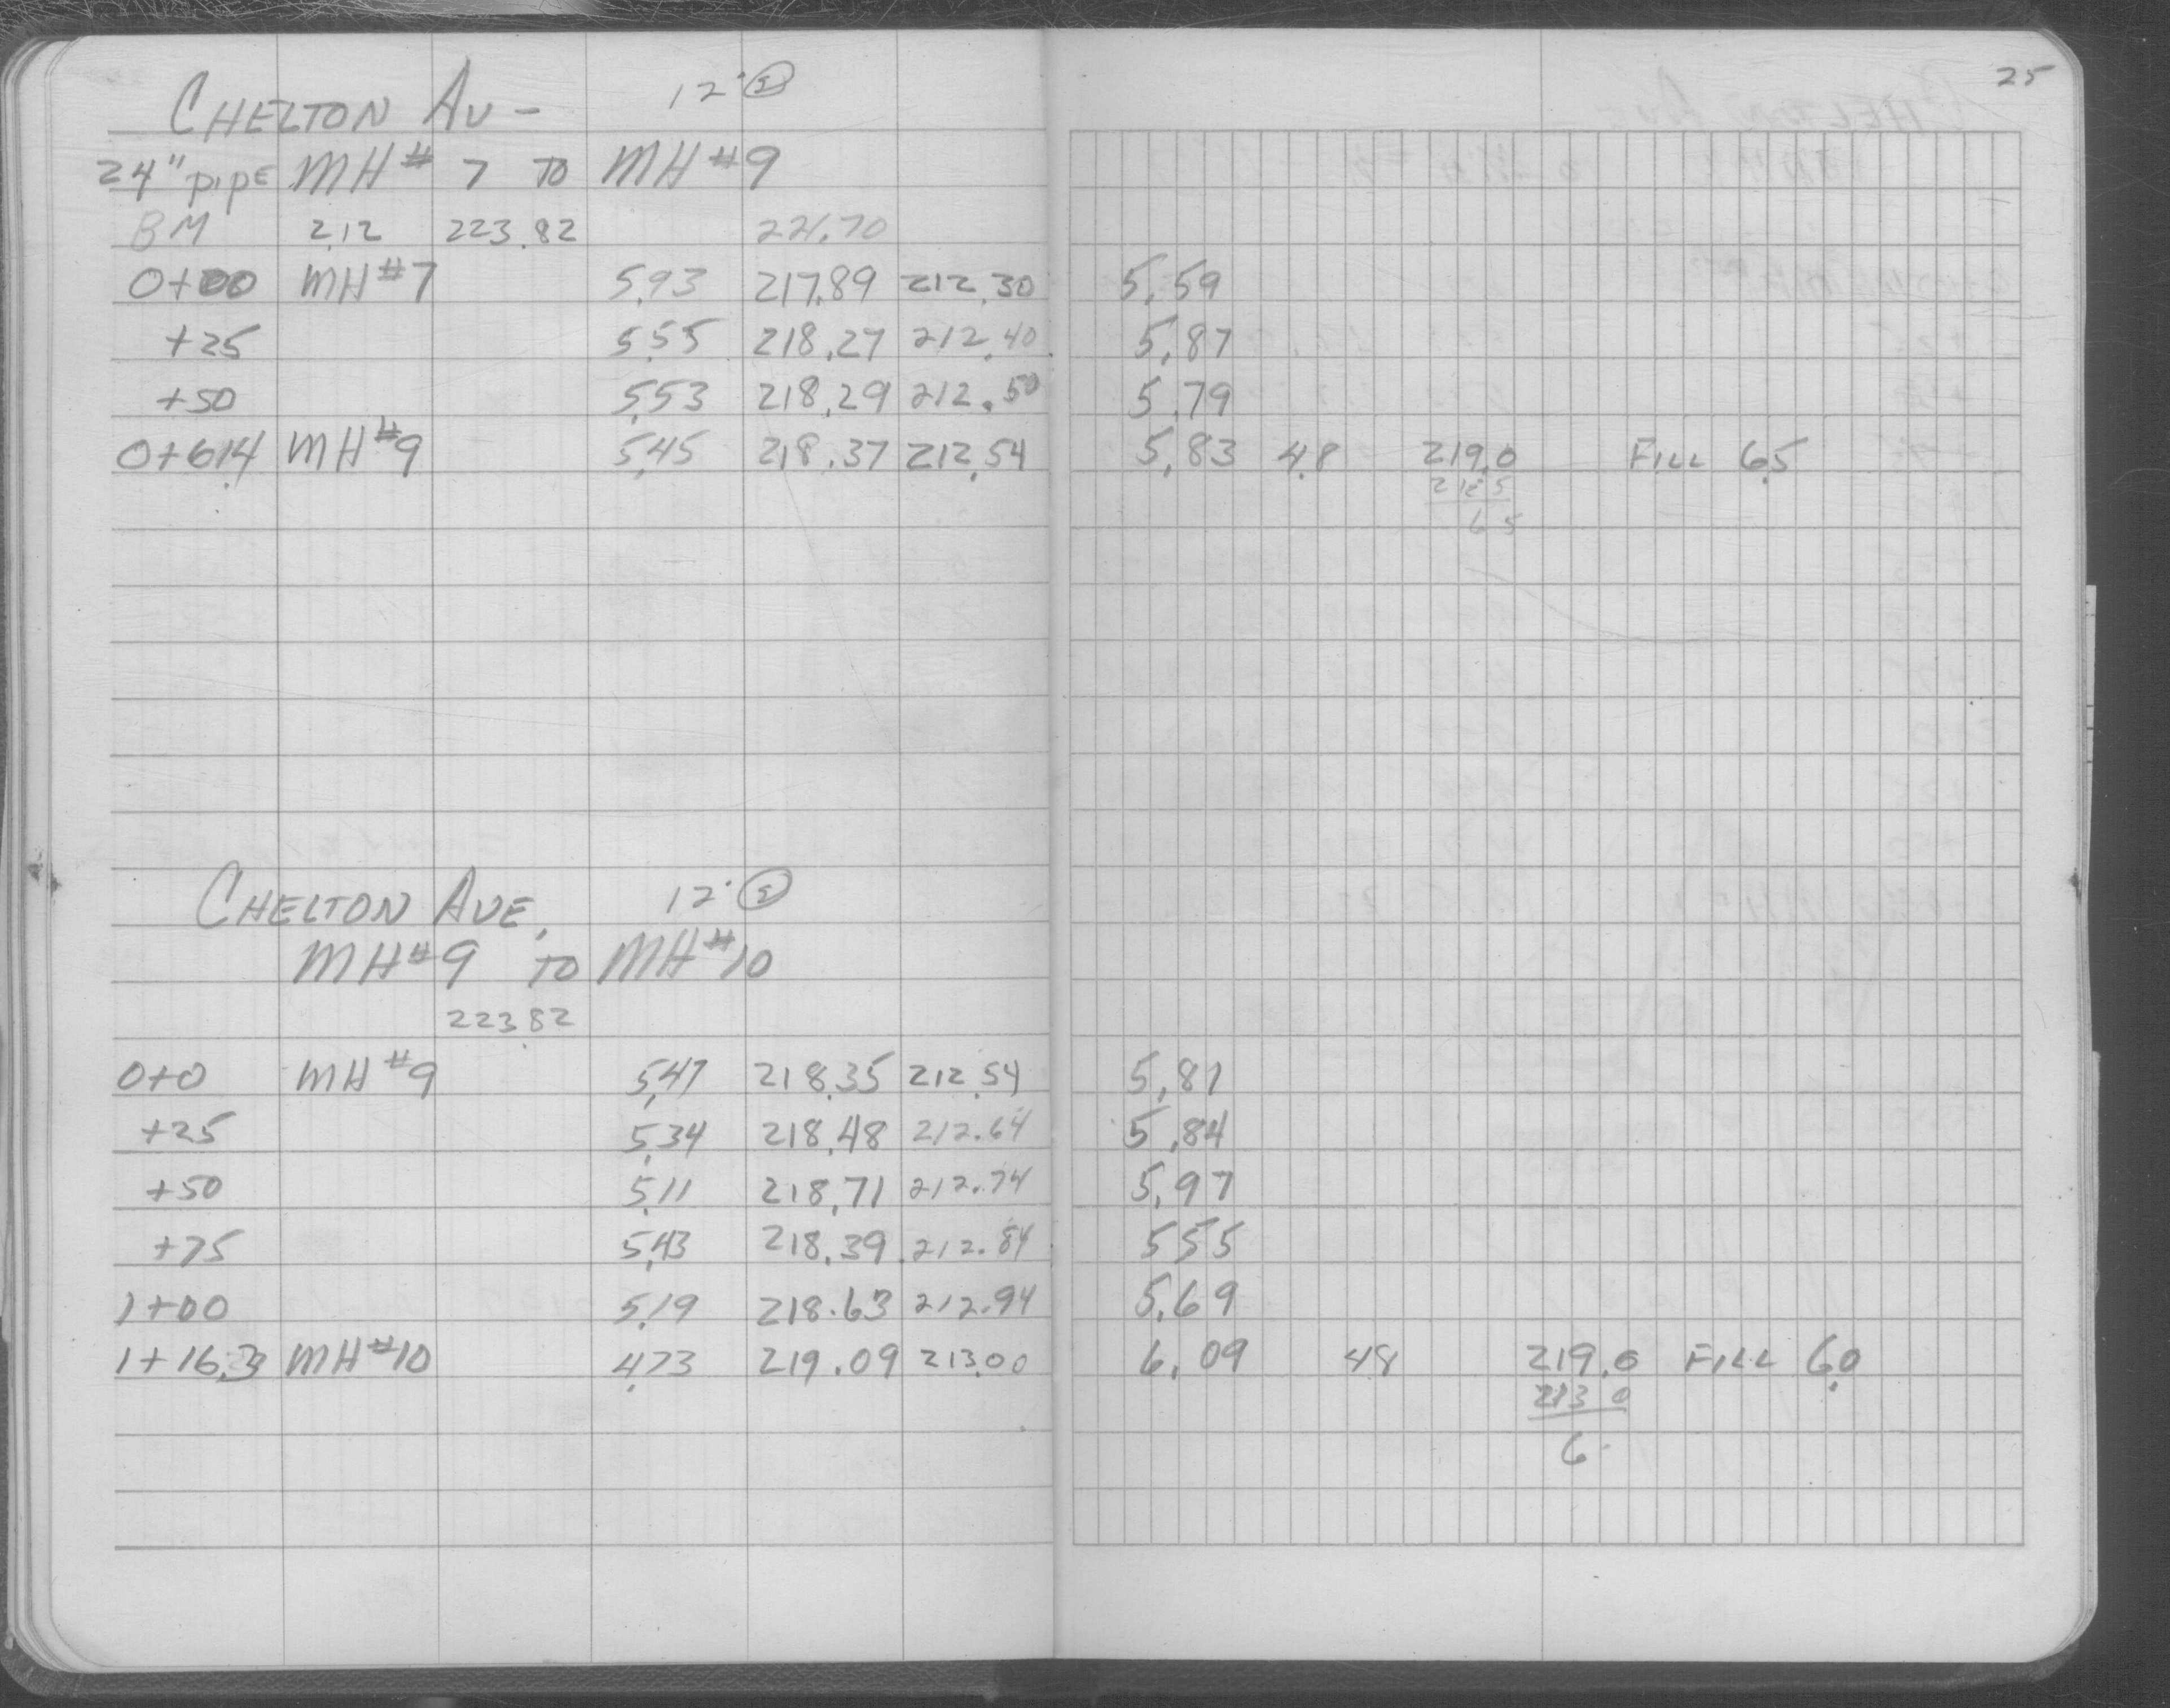 25
CHELTON AV - 12' 
24" pipe MH# 7 TO MH #9
BM 2.12 223.82 221.70
0+00 MH#7 5.93 217.89 212.30 5.59
+25 5.55 218.27 212.40 5.87
+50 5.53 218.29 212.50 5.79
0+61.4 MH#9 5.45 218.37 212.54 5.83 4.8 219.0 FILL 6.5
212.5
6 5
CHELTON AVE. 12' 
MH#9 TO MH#10
223.82
0+0 MH#9 5.47 218.35 212.54 5.81
+25 5.34 218.48 212.64 5.84
+50 5.11 218.71 212.74 5.97
+75 5.43 218.39 212.84 5 55
1+00 5.19 218.63 212.94 5.69
1+16.3 MH#10 4.73 219.09 213.00 6.09 48 219.0 FILL 6.0
213 0
6